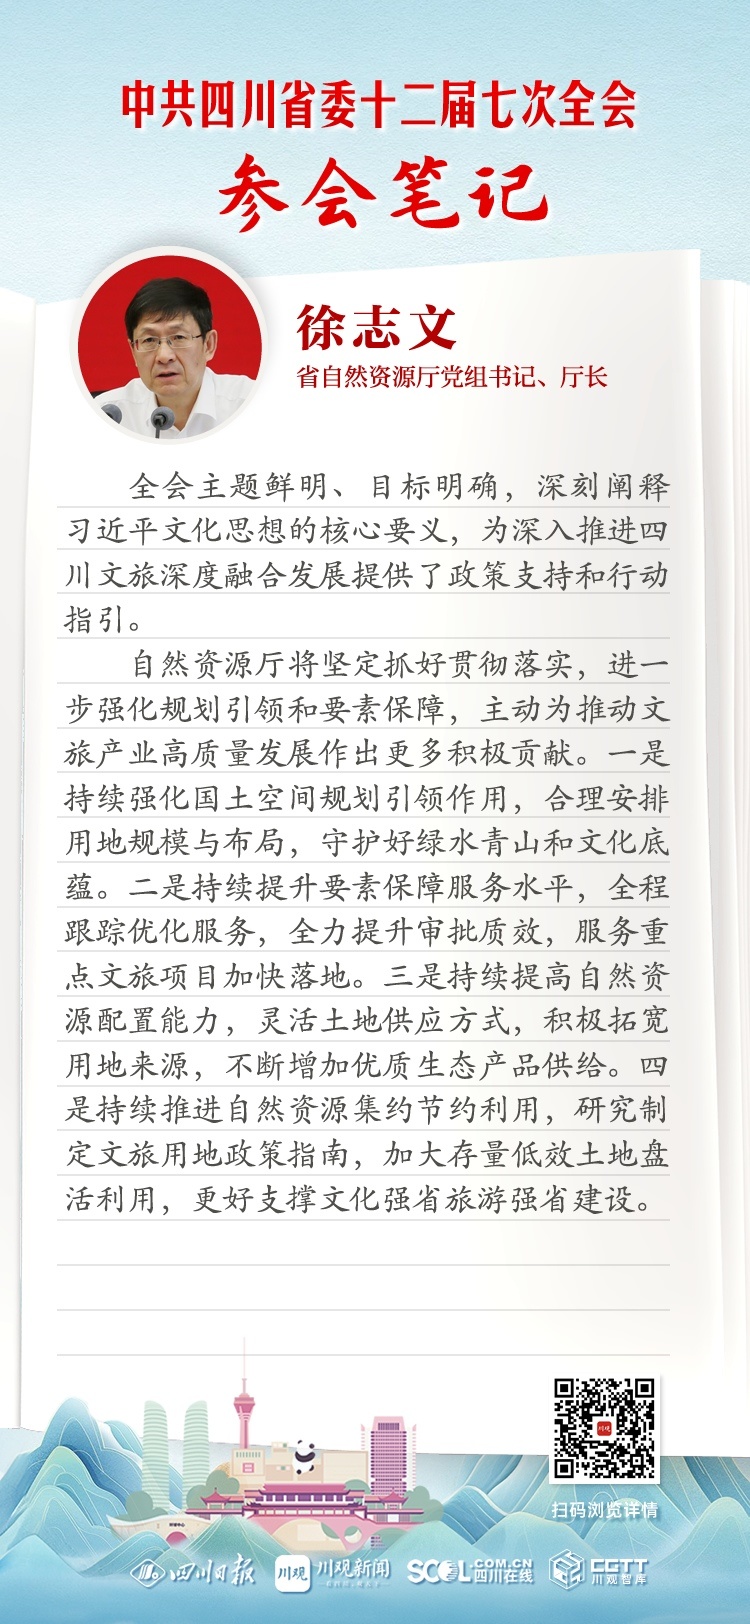 中共四川省委十二届七次全会
参会笔记
徐志文
省自然资源厅党组书记、厅长
全会主题鲜明、目标明确，深刻阐释
习近平文化思想的核心要义，为深入推进四
川文旅深度融合发展提供了政策支持和行动
指引。
自然资源厅将坚定抓好贯彻落实，进一
步强化规划引领和要素保障，主动为推动文
旅产业高质量发展作出更多积极贡献。一是
持续强化国土空间规划引领作用，合理安排
用地规模与布局，守护好绿水青山和文化底
蕴。二是持续提升要素保障服务水平，全程
跟踪优化服务，全力提升审批质效，服务重
点文旅项目加快落地。三是持续提高自然资
源配置能力，灵活土地供应方式，积极拓宽
用地来源，不断增加优质生态产品供给。四
是持续推进自然资源集约节约利用，研究制
定文旅用地政策指南，加大存量低效土地盘
活利用，更好支撑文化强省旅游强省建设。
川观
扫码浏览详情
四川日报
川观 川观新闻
SCOL.COM.CN
四川在线
CGTT
川观智库